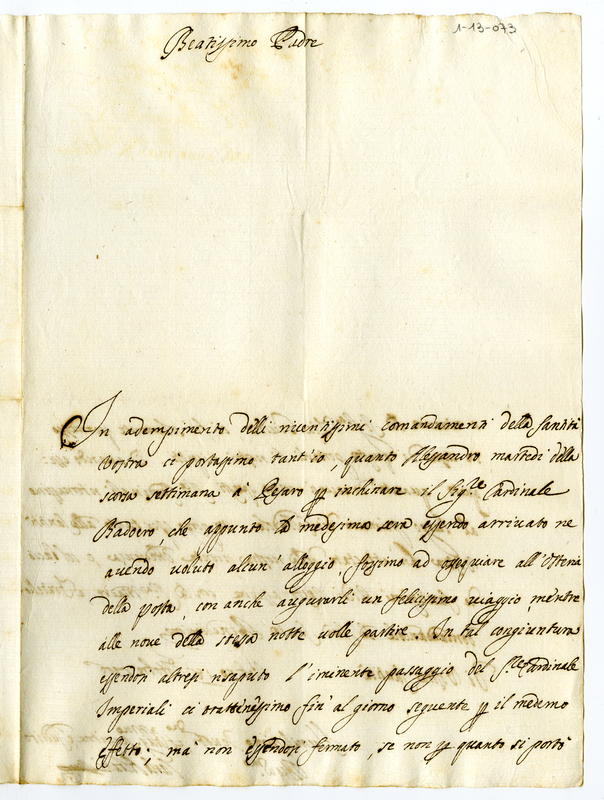 1-13-073
Beatissimo Padre
In adempimento delli riveritissimi comandamenti della Santità
Vostra ci portassimo tant'io, quanto Alessandro martedì della
scorsa settimana à Pesaro p inchinare il Sig.re Cardinale
Badoero, che appunto la medesima sera essendo arrivato ne
avendo voluto alcun' alloggio, fossimo ad ossequiare all'Osteria
della posta, con anche augurarli un felicissimo viaggio, mentre
alle nove della stessa notte volle partire. In tal congiuntura
essendosi altresì risaputo l'iminente passaggio del S.re Cardinale
Imperiali ci trattenessimo fin' al giorno seguente p il medemo
effetto; mà non essendosi fermato, se non p quanto si portò